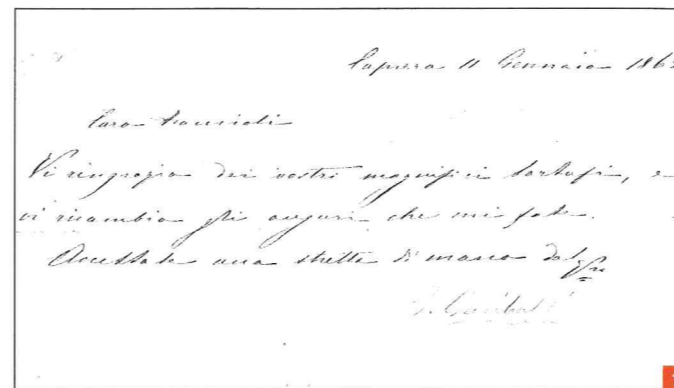 Caprera 11 Gennaio 186
Caro
Vi ringrazio dei vostri magnifici tartufi, e
vi ricambio gli auguri che mi fate.
Accettate una stretta di mano dal
G. Garibaldi